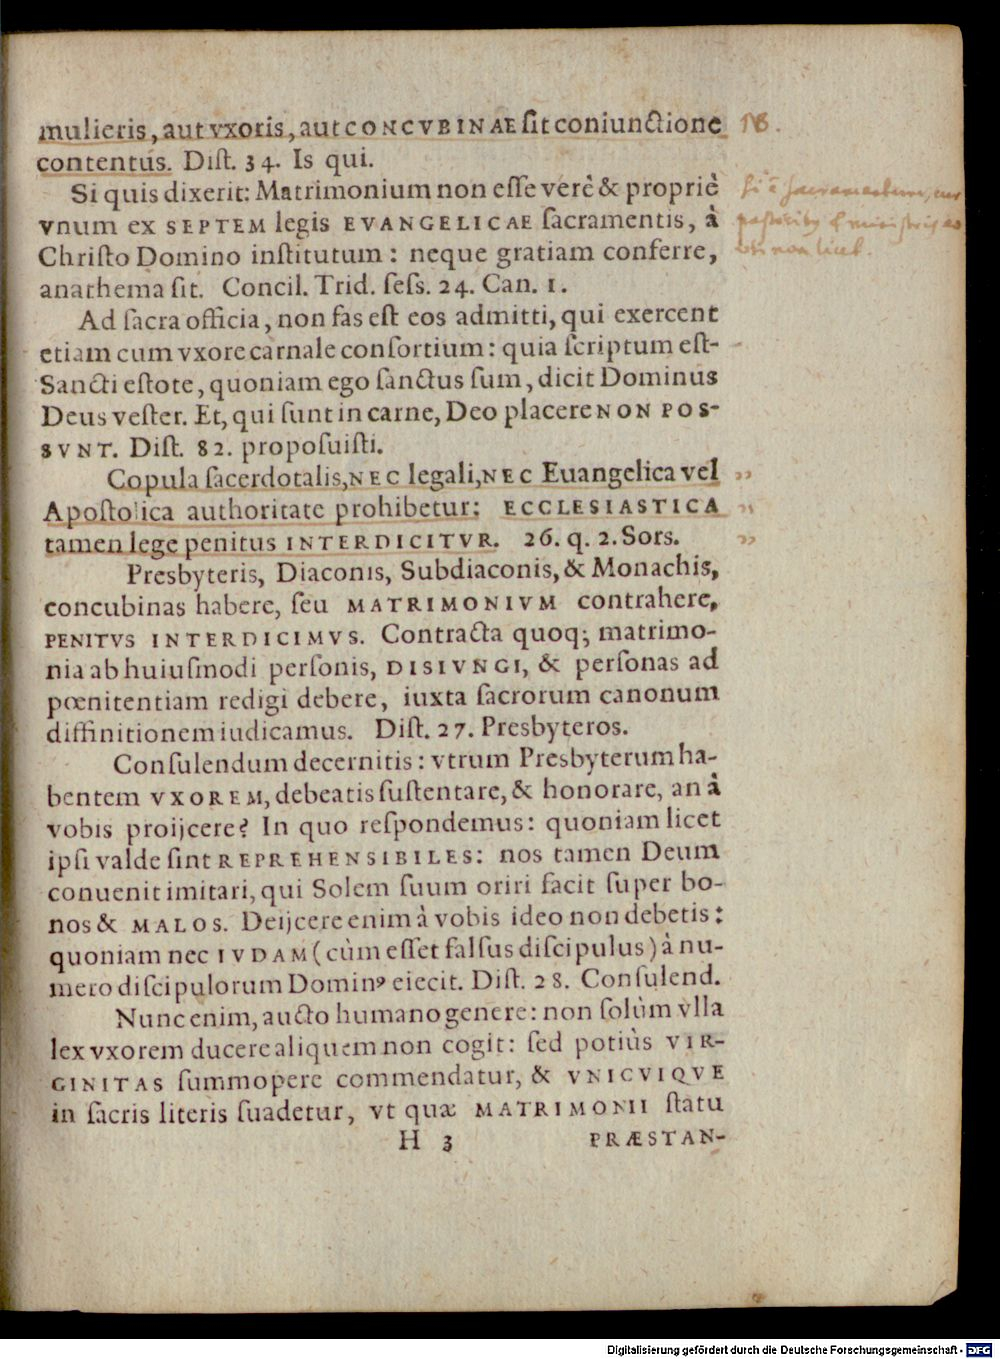 mulieris, aut vxoris, aut CONCVBINAE sit coniunctione
contentus. Dist. 34. Is qui.
Si quis dixerit: Matrimonium non esse verè & propriè
vnum ex SEPTEM legis EVANGELICAE sacramentis, à
Christo Domino institutum: neque gratiam conferre,
anathema sit. Concil. Trid. sess. 24. Can. 1.
Ad sacra officia, non fas est eos admitti, qui exercent
etiam cum vxore carnale consortium: quia scriptum est-
Sancti estote, quoniam ego sanctus sum, dicit Dominus
Deus vester. Et, qui sunt in carne, Deo placere NON POS-
SVNT. Dist. 82. proposuisti.
Copula sacerdotalis, NEC legali, NEC Euangelica vel
Apostolica authoritate prohibetur: ECCLESIASTICA
tamen lege penitus INTERDICITVR. 26. q. 2. Sors.
Presbyteris, Diaconis, Subdiaconis, & Monachis,
concubinas habere, seu MATRIMONIVM contrahere,
PENITVS INTERDICIMVS. Contracta quoq; matrimo-
nia ab huiusmodi personis, DISIVNGI, & personas ad
pœnitentiam redigi debere, iuxta sacrorum canonum
diffinitionem iudicamus. Dist. 27. Presbyteros.
Consulendum decernitis: vtrum Presbyterum ha-
bentem VXOREM, debeatis sustentare, & honorare, an à
vobis proijcere? In quo respondemus: quoniam licet
ipsi valde sint REPREHENSIBILES: nos tamen Deum
conuenit imitari, qui Solem suum oriri facit super bo-
nos & MALOS. Deijcere enim à vobis ideo non debetis:
quoniam nec IVDAM (cùm esset falsus discipulus) à nu-
mero discipulorum Dominꝰ eiecit. Dist. 28. Consulend.
Nunc enim, aucto humano genere: non solùm vlla
lex vxorem ducere aliquem non cogit: sed potiùs VIR-
GINITAS summopere commendatur, & VNICVIQVE
in sacris literis suadetur, vt quæ MATRIMONII statu
H 3 PRÆSTAN-
Digitalisierung gefördert durch die Deutsche Forschungsgemeinschaft - DFG